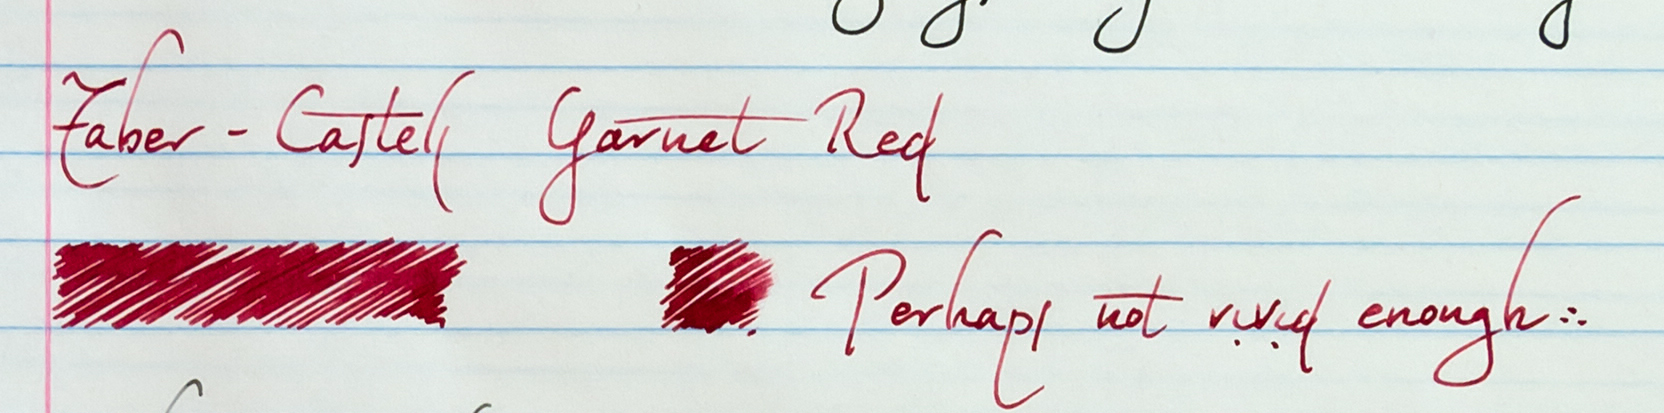 Faber-Castell Garnet Red
Perhaps not vivid enough∴